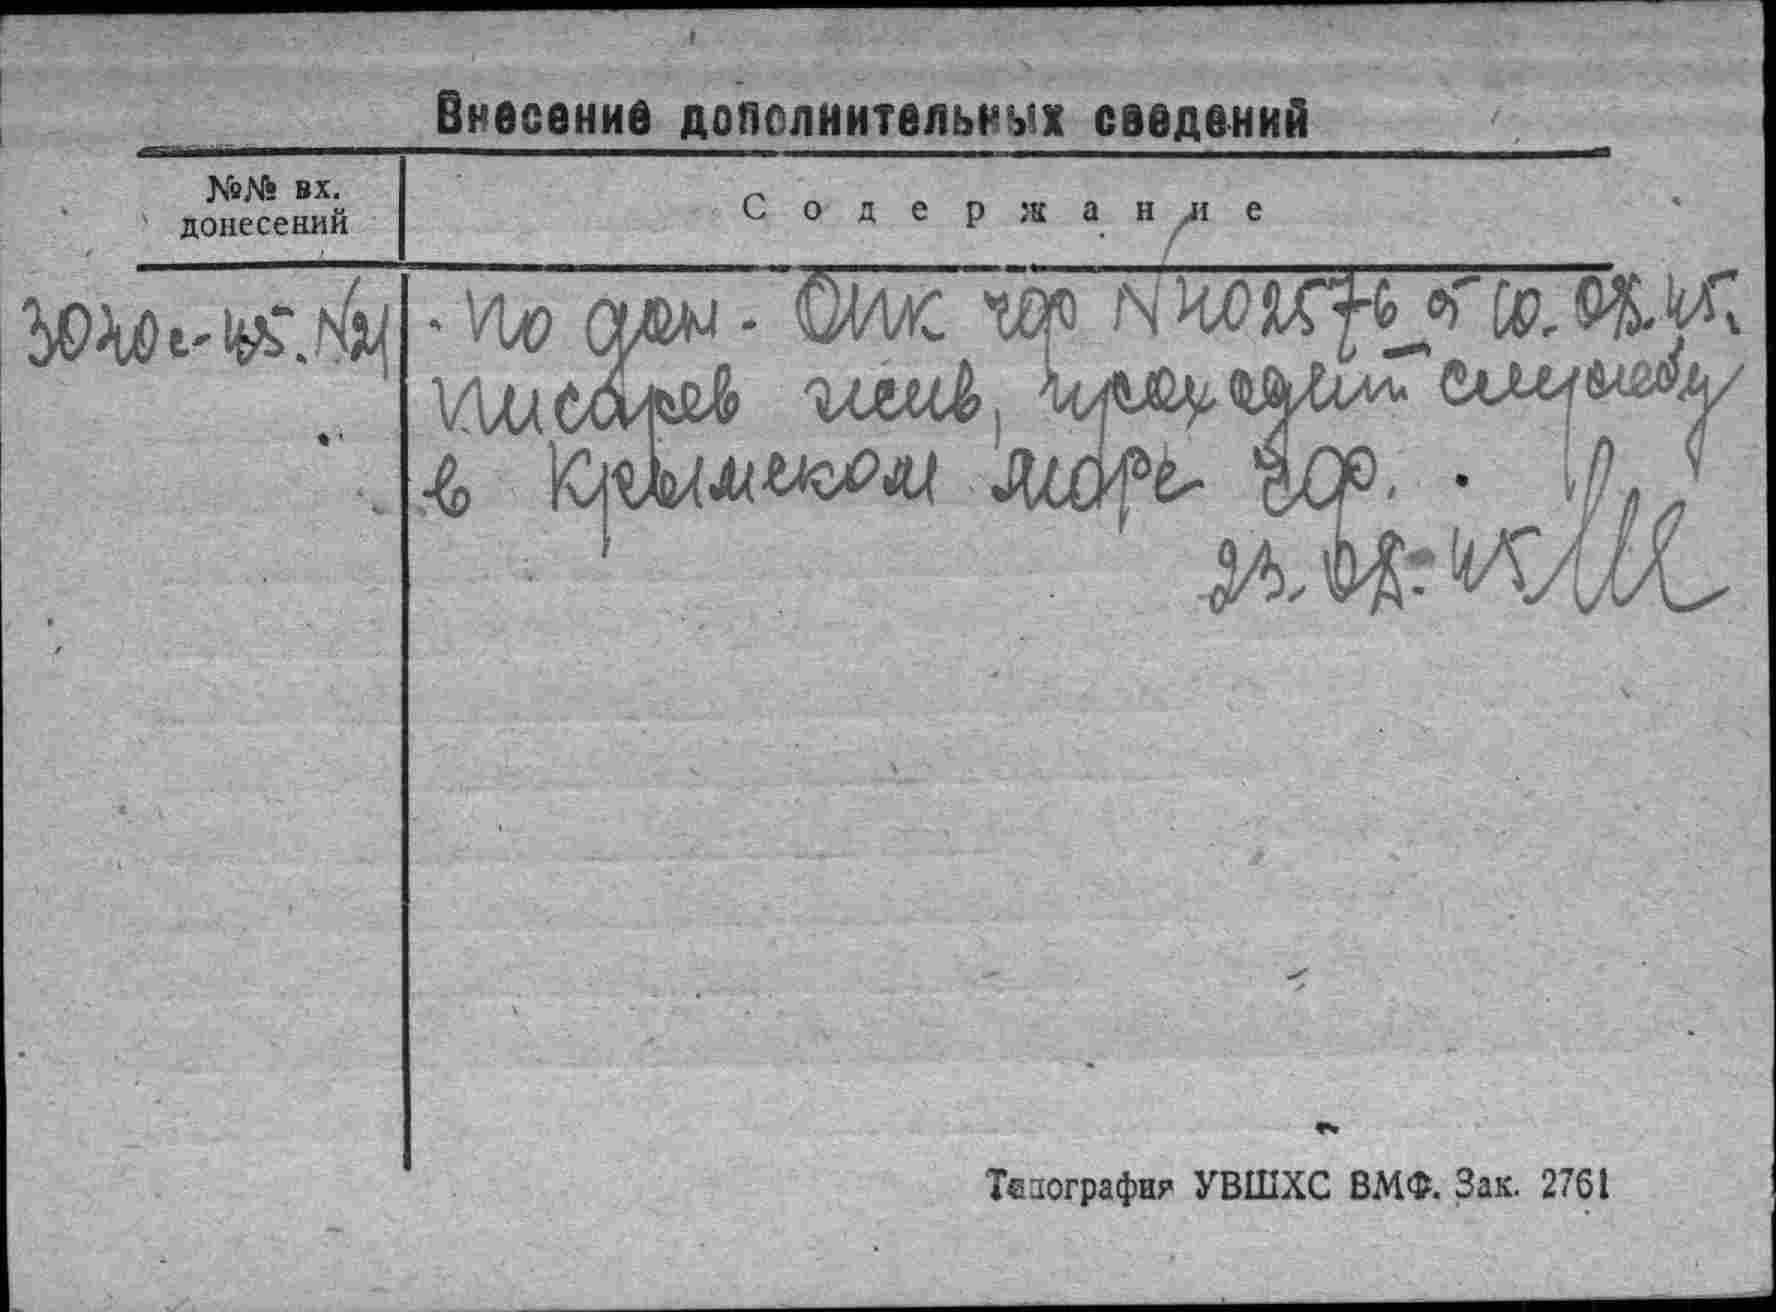 Внесение дополнительных сведений
№№ вх. донесений
Содержание
3040с-45. №21
По дон. ОИК ЧФ N 402576 от 10.08.45.
Писарев жив, проходит службу
в Крымском море ЧФ.
23.08.45
Типография УВШХС ВМФ. Зак. 2761